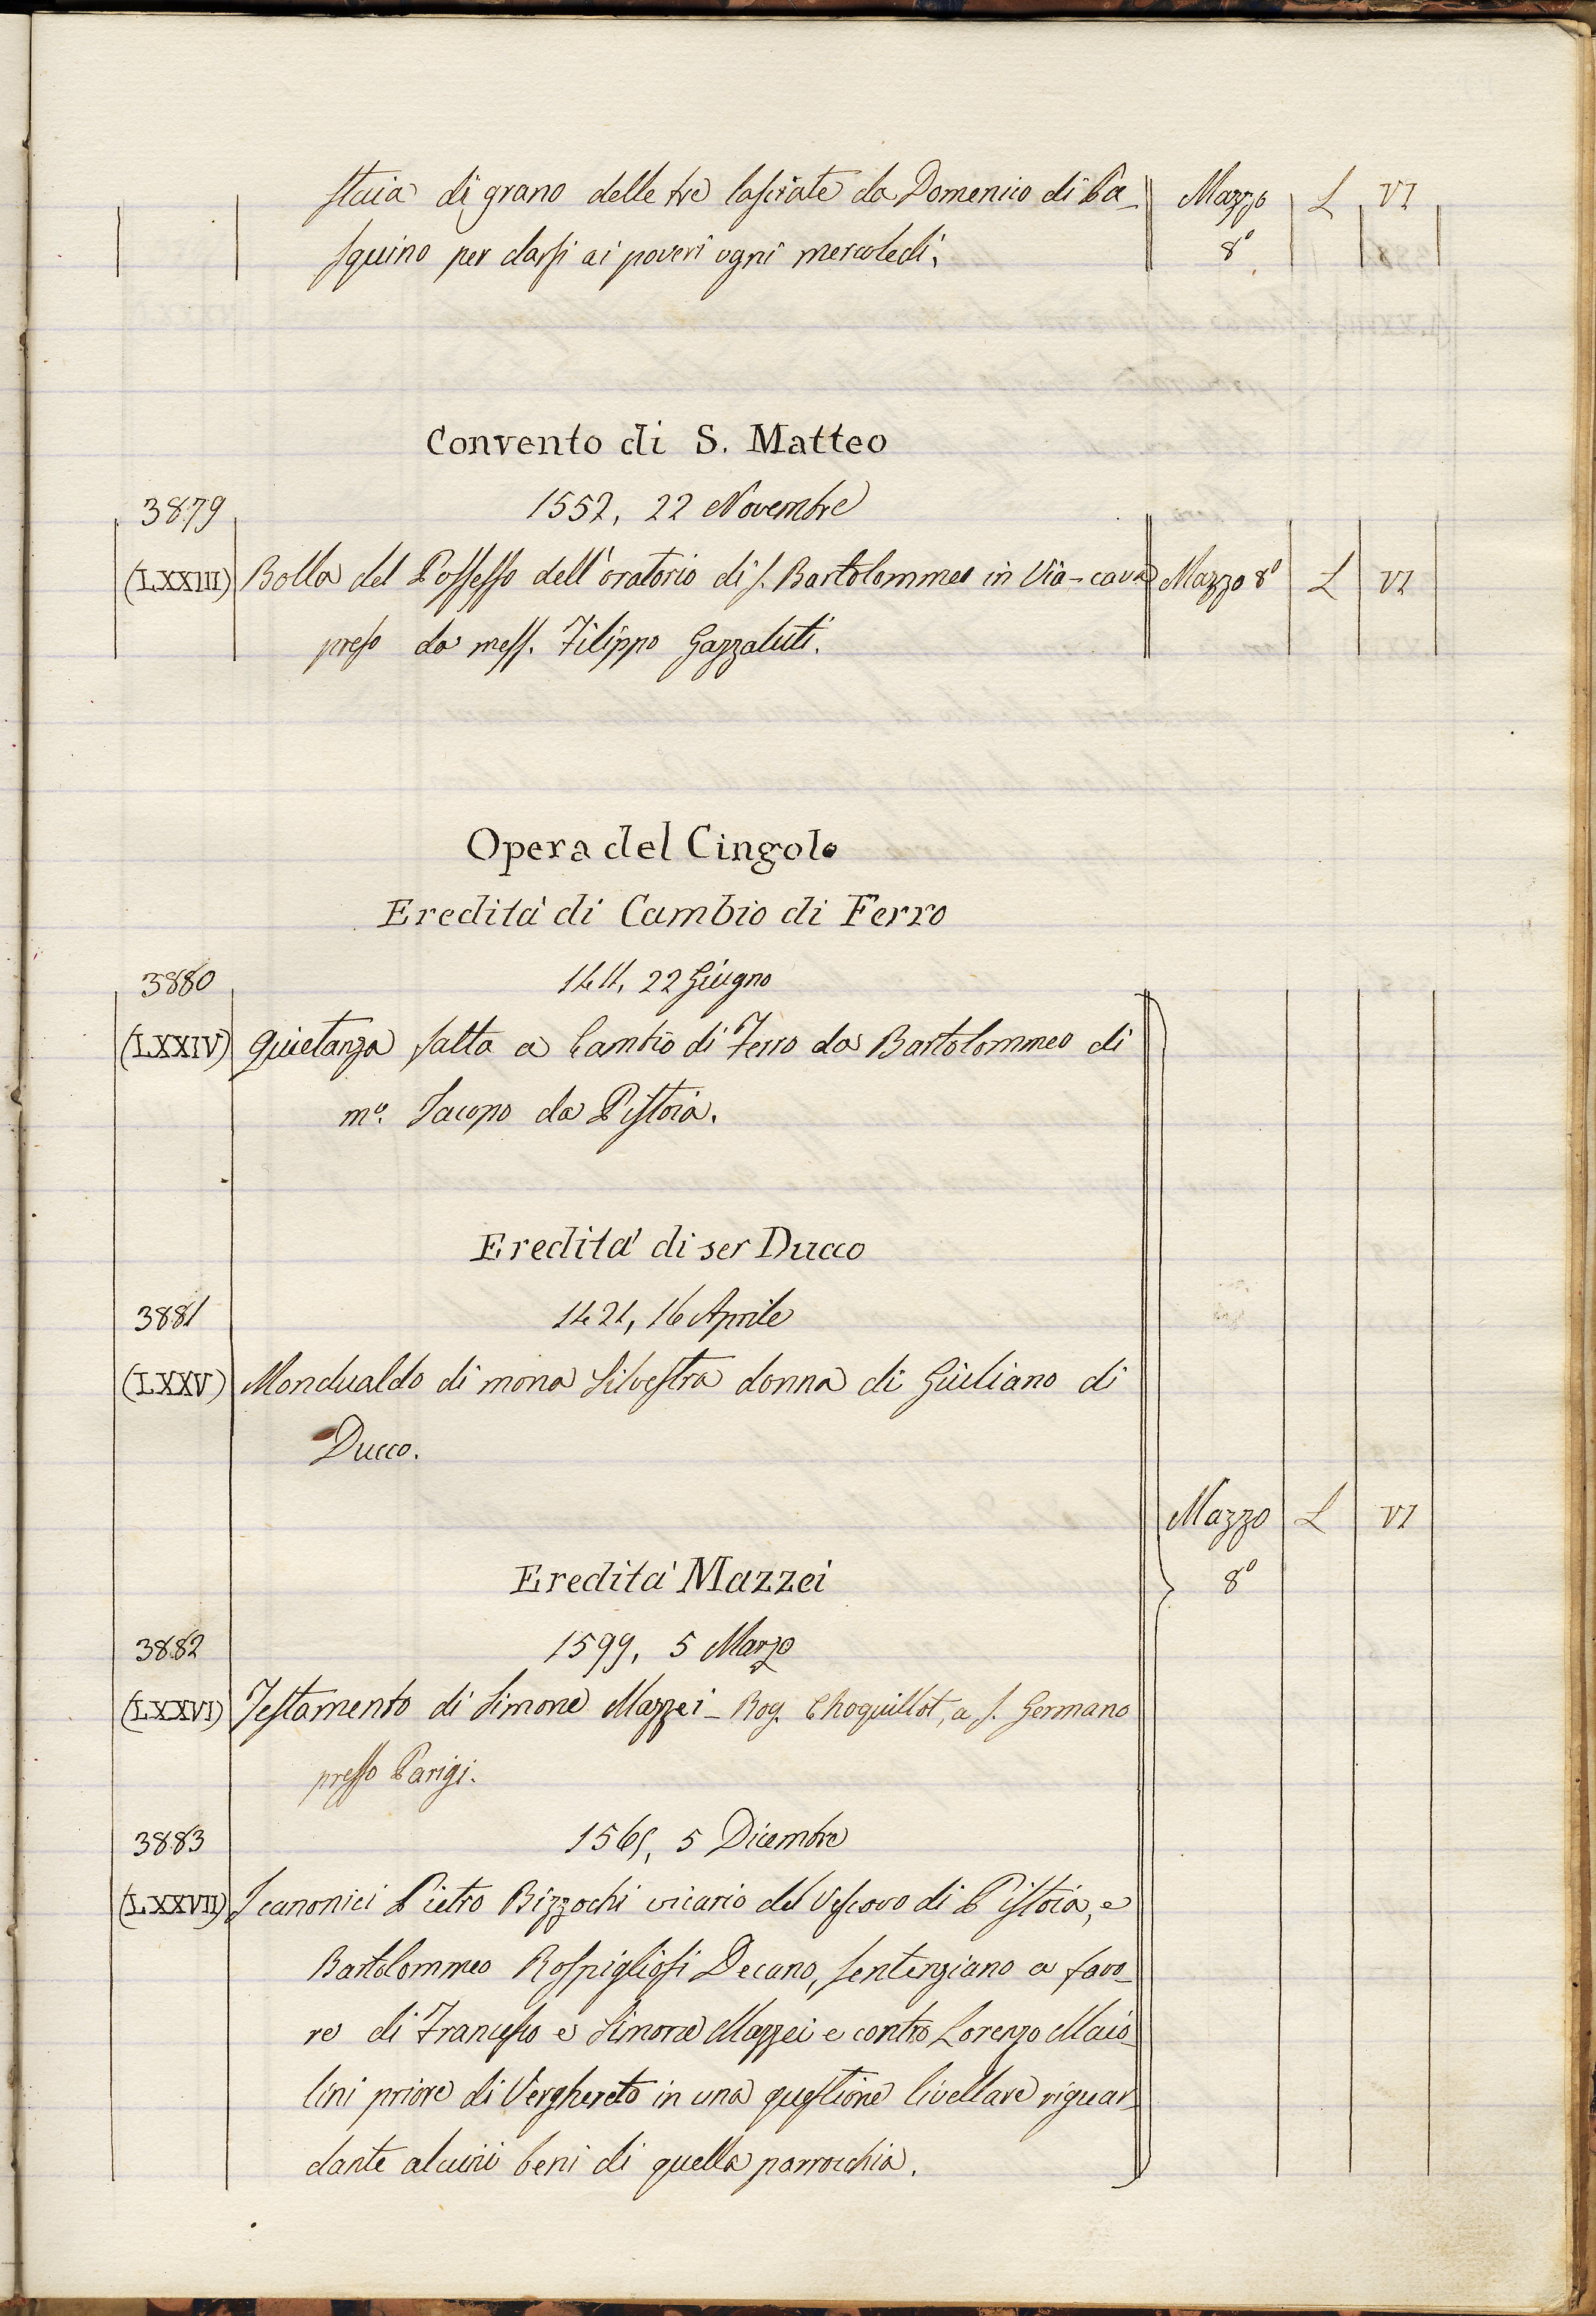 staia di grano delle tre lasciate da Domenico di Pa- Mazzo L VI
squino per darsi ai poveri ogni mercoledi. 8°
Convento di S. Matteo
3879 1552, 22 Novembre
(LXXIII) Bolla del Possesso dell'oratorio di S. Bartolommeo in Via-cava Mazzo 8° L VI
preso da mess. Filippo Gazzaluti.
Opera del Cingolo
Eredità di Cambio di Ferro
3880 1411, 22 Giugno
(LXXIV) Quietanza fatta a Cambio di Ferro da Bartolommeo di
m°. Iacopo da Pistoia.
Eredità di ser Ducco
3881 1421, 16 Aprile
(LXXV) Mondualdo di mona Silvestra donna di Giuliano di
Ducco.
Mazzo L VI
8°
Eredità Mazzei
3882 1599, 5 Marzo
(LXXVI) Testamento di Simone Mazzei - Rog. Choquillot, a S. Germano
presso Parigi.
3883 1565, 5 Dicembre
(LXXVII) I canonici Pietro Bizzochi vicario del Vescovo di Pistoia, e
Bartolommeo Rospigliosi Decano, sentenziano a favo-
re di Francesco e Simone Mazzei e contro Lorenzo Maio-
lini priore di Verghereto in una questione livellare riguar-
dante alcuni beni di quella parrocchia.